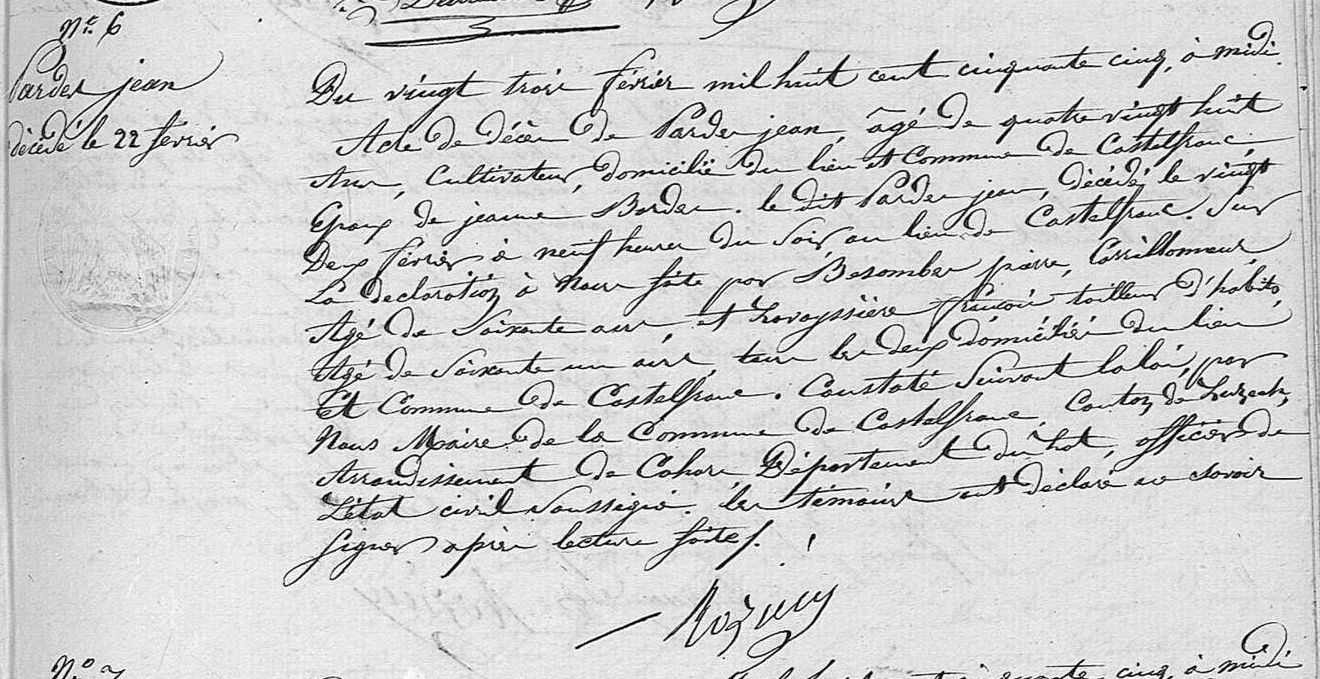 N.º 6
Pardes jean
décédé le 22 février
Du vingt trois février mil huit cent cinquante cinq, à midi.
Acte de décès de Pardes jean, âgé de quatre vingt huit
Ans, Cultivateur, domicilié du lieu et Commune de Castelfranc,
Epoux de jeanne Bordes. le dit Pardes jean, décédé le vingt
Deux février à neuf heures du Soir, au lieu de Castelfranc. Sur
La déclaration à Nous faite par Besombes pierre, Carrillonneur,
Agé de Soixante ans, et Lavayssière françois tailleur d'habits,
Agé de Soixante un ans, tous les deux domiciliés du lieu
Et Commune de Castelfranc. Constaté Suivant la loi, par
Nous Maire de la Commune de Castelfranc, Canton de Luzech,
Arrondissement de Cahors Département du Lot, officier de
L'état civil Soussigné. les témoins ont déclaré ne savoir
Signer après lecture faite /.
N.º 7
cinq, à midi